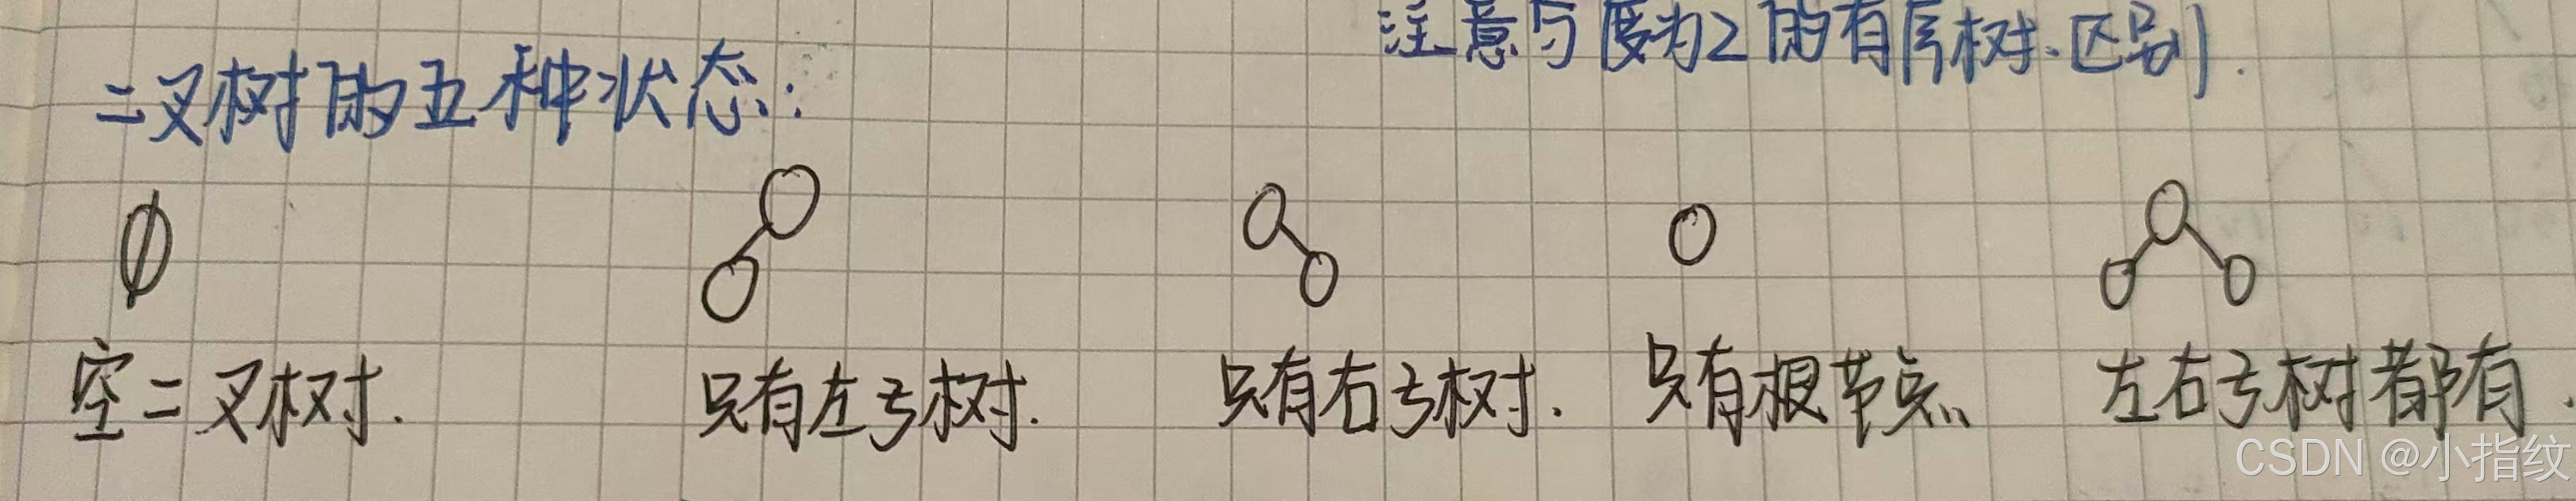 注意与度为2的有序树.区别.
二叉树的五种状态:
∅
空二叉树.
只有左子树.
只有右子树.
只有根节点
左右子树都有.
CSDN @小指纹